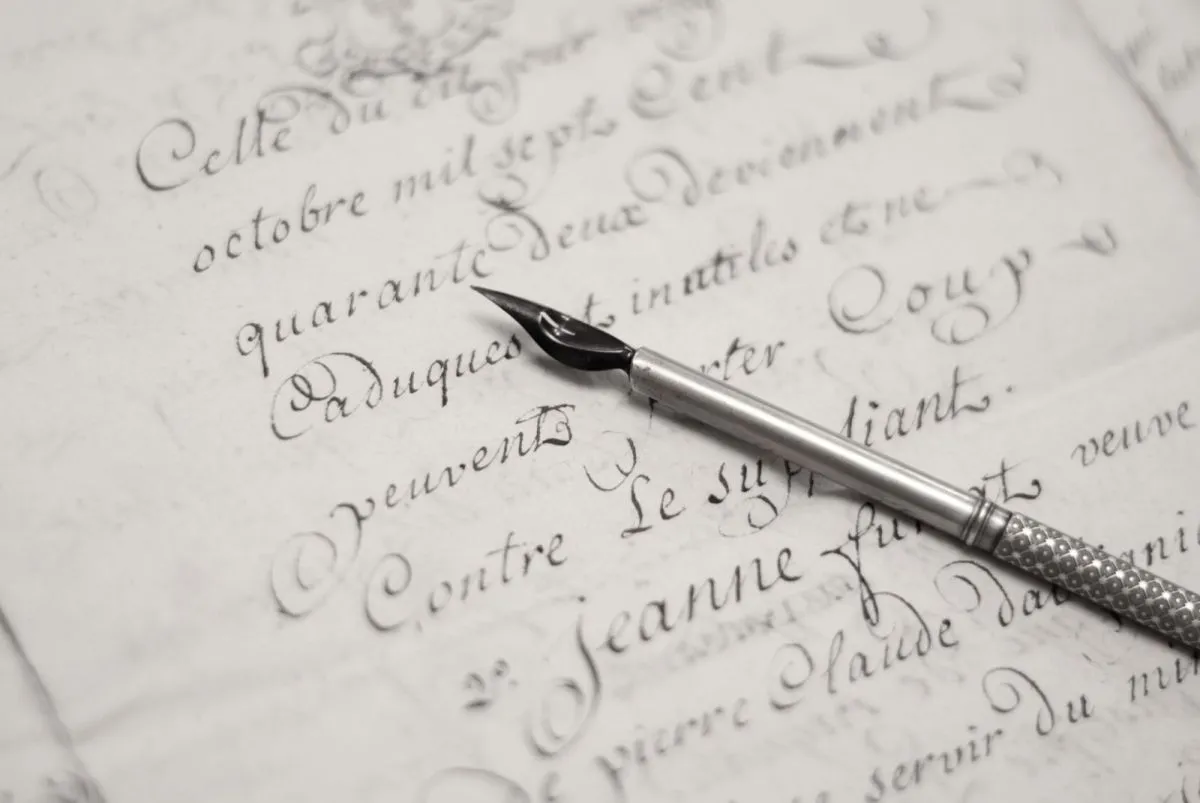 Celle du dit jour
octobre mil sept Cent
quarante Deux Deviennent
Caduques et inutiles et ne
peuvent porter Coup
Contre Le supliant.
2º. Jeanne veuve
De pierre Claude
servir Du